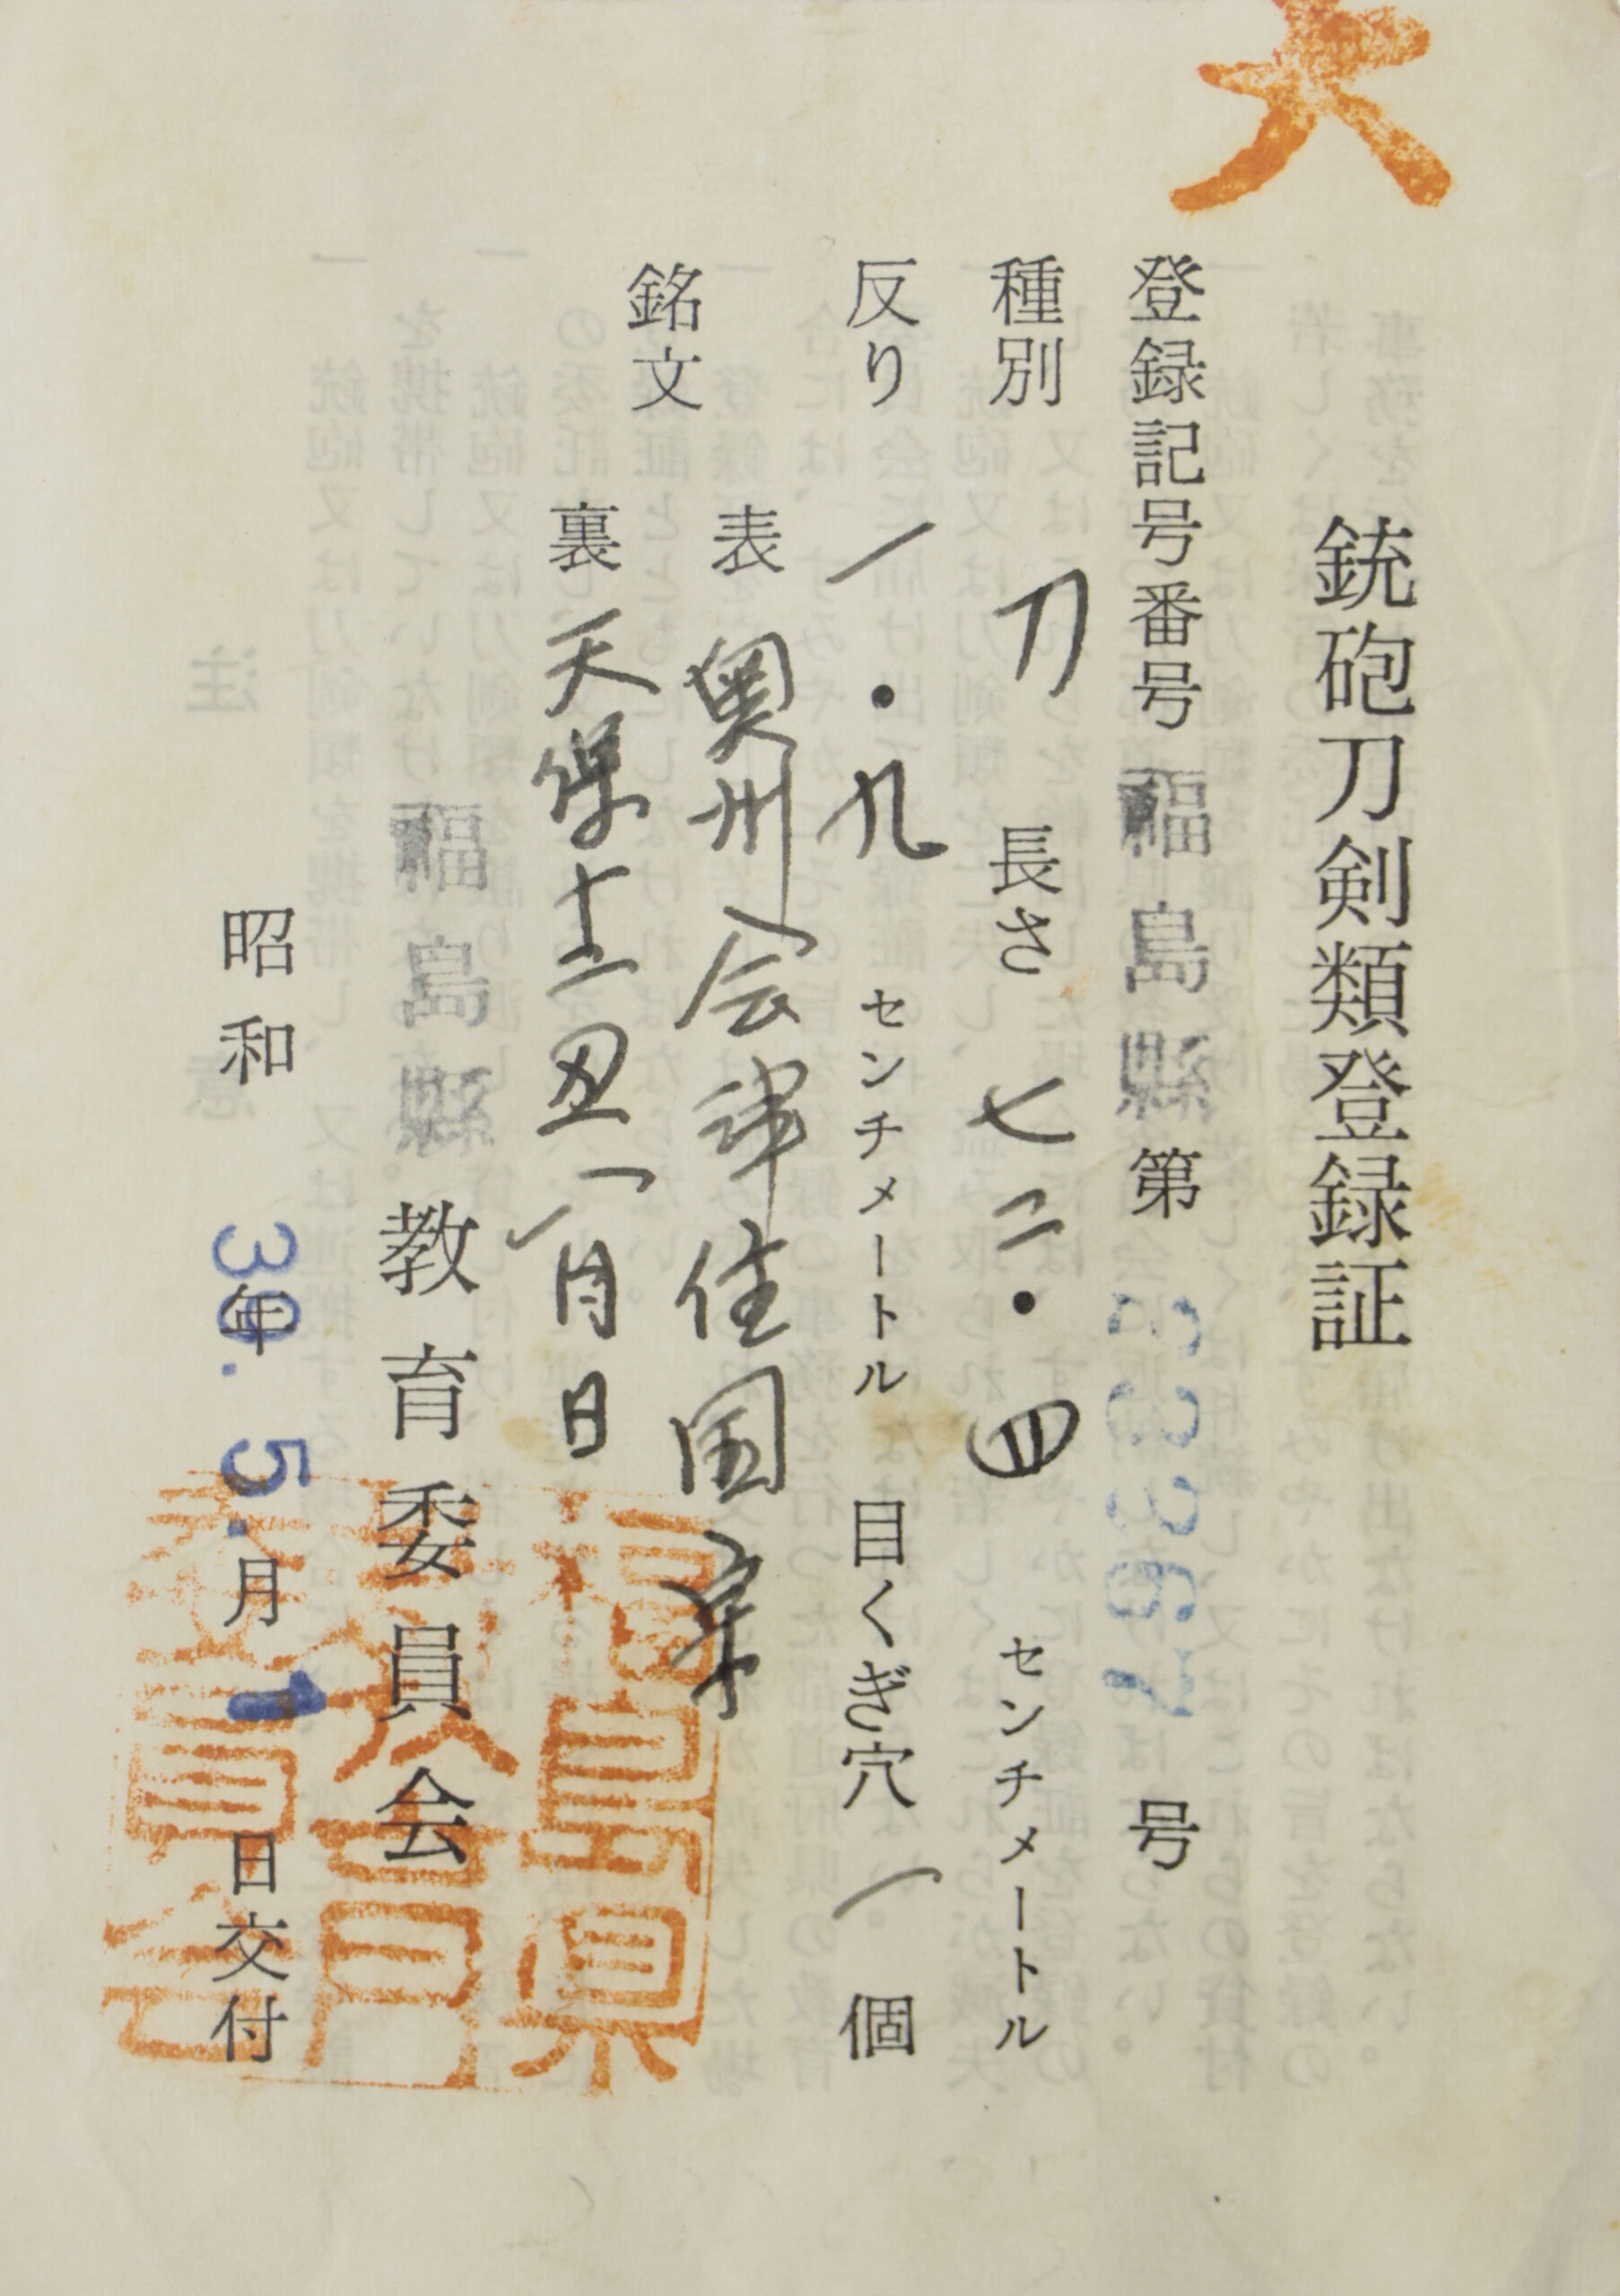 銃砲刀剣類登録証
登録記号番号 福島縣 第 号
種別 刀 長さ 七二・四 センチメートル
反り 一・九 センチメートル 目くぎ穴 一 個
銘文
表 奥州会津住国宗
裏 天保十二丑八月日
福島縣 教育委員会
昭和 39年. 5.月 1 日交付